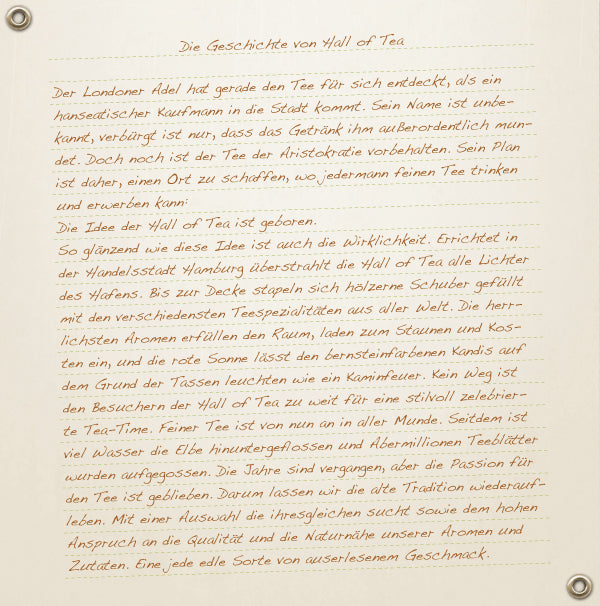 Die Geschichte von Hall of Tea
Der Londoner Adel hat gerade den Tee für sich entdeckt, als ein
hanseatischer Kaufmann in die Stadt kommt. Sein Name ist unbe-
kannt, verbürgt ist nur, dass das Getränk ihm außerordentlich mun-
det. Doch noch ist der Tee der Aristokratie vorbehalten. Sein Plan
ist daher, einen Ort zu schaffen, wo jedermann feinen Tee trinken
und erwerben kann:
Die Idee der Hall of Tea ist geboren.
So glänzend wie diese Idee ist auch die Wirklichkeit. Errichtet in
der Handelsstadt Hamburg überstrahlt die Hall of Tea alle Lichter
des Hafens. Bis zur Decke stapeln sich hölzerne Schuber gefüllt
mit den verschiedensten Teespezialitäten aus aller Welt. Die herr-
lichsten Aromen erfüllen den Raum, laden zum Staunen und Kos-
ten ein, und die rote Sonne lässt den bernsteinfarbenen Kandis auf
dem Grund der Tassen leuchten wie ein Kaminfeuer. Kein Weg ist
den Besuchern der Hall of Tea zu weit für eine stilvoll zelebrier-
te Tea-Time. Feiner Tee ist von nun an in aller Munde. Seitdem ist
viel Wasser die Elbe hinuntergeflossen und Abermillionen Teeblätter
wurden aufgegossen. Die Jahre sind vergangen, aber die Passion für
den Tee ist geblieben. Darum lassen wir die alte Tradition wiederauf-
leben. Mit einer Auswahl die ihresgleichen sucht sowie dem hohen
Anspruch an die Qualität und die Naturnähe unserer Aromen und
Zutaten. Eine jede edle Sorte von auserlesenem Geschmack.